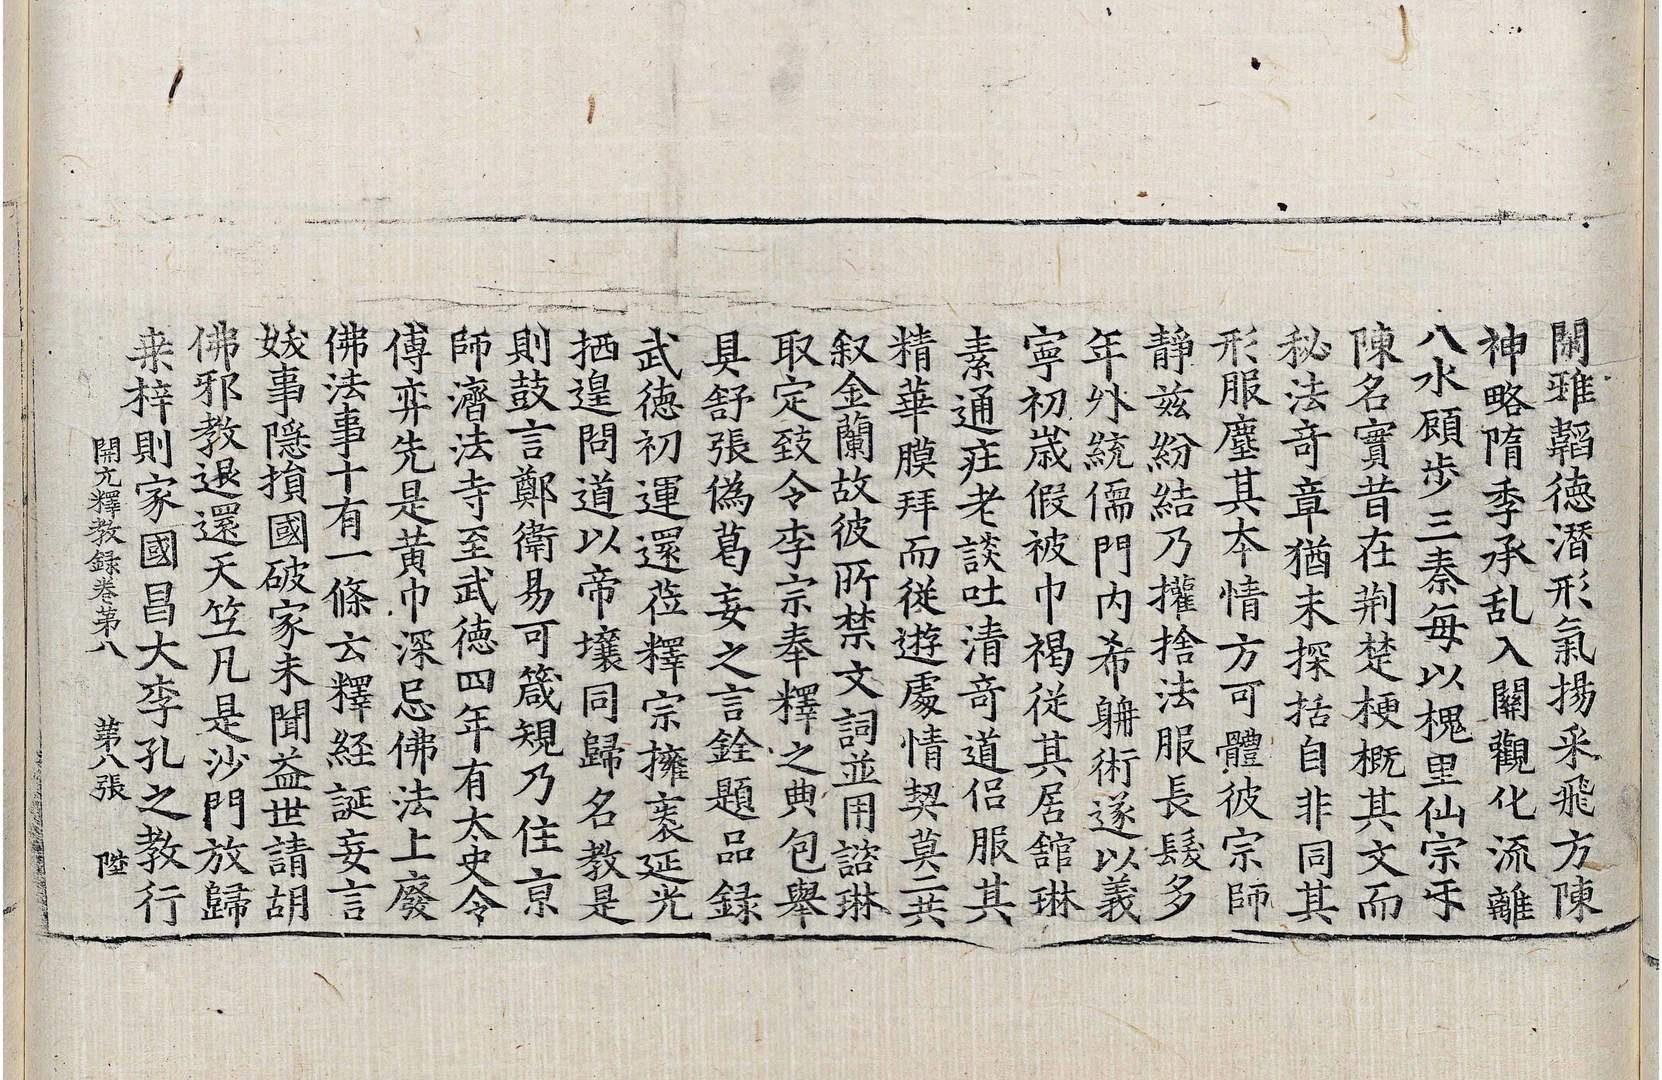 閑雅韜德潛形氣揚采飛方陳
神略隋季承乱入關觀化流離
八水顧步三秦每以槐里仙宗互
陳名實昔在荆楚梗概其文而
秘法奇章猶未探括自非同其
形服塵其本情方可體彼宗師
靜兹紛結乃攉捨法服長髮多
年外統儒門内希聃術遂以義
寧初歲假被巾褐從其居舘琳
素通莊老談吐清奇道侶服其
精華膜拜而從遊處情契莫二共
叙金蘭故彼所禁文詞並用諮琳
取定致令李宗奉釋之典包舉
具舒張僞葛妄之言銓題品録
武德初運還莅釋宗擁袠延光
栖遑問道以帝壤同歸名教是
則鼓言鄭衛易可箴規乃住京
師濟法寺至武德四年有太史令
傅弈先是黄巾深忌佛法上廢
佛法事十有一條云釋経誕妄言
妖事隱損國破家未聞益世請胡
佛邪教退還天竺凡是沙門放歸
桒梓則家國昌大李孔之教行
開元釋教録卷第八　第八張　陛